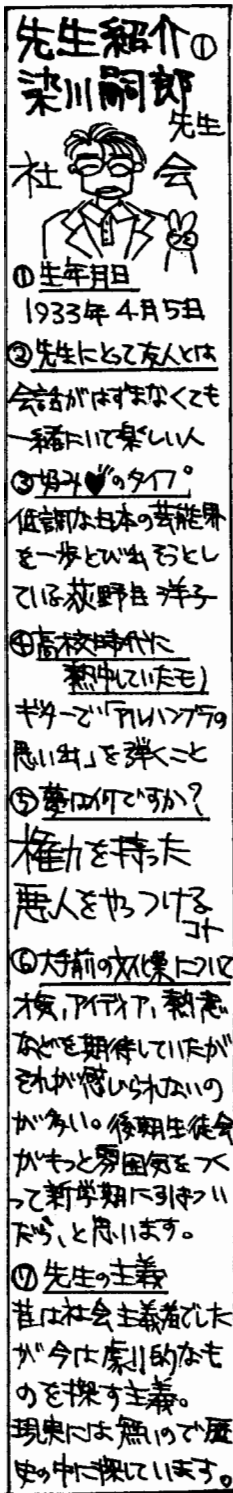 先生紹介①
染川嗣郎
先生
社会
①生年月日
1933年4月5日
②先生にとって友人とは
会話がはずまなくても
一緒にいて楽しい人
③好み♥のタイプ
低調な日本の芸能界
を一歩とび出そうとし
ている荻野目洋子
④高校時代に
熱中していたもの
ギターで「アルハンブラの
思い出」を弾くこと
⑤夢は何ですか?
権力を持った
悪人をやっつける
コト
⑥大手前の文化祭について
才気,アイディア,熱意
などを期待していたが
それが感じられないの
が多い。後期生徒会
がもっと雰囲気をつく
って新学期に引きつい
だら、と思います。
⑦先生の主義
昔は社会主義者でした
が今は劇的なも
のを探す主義。
現実には無いので歴
史の中に探しています。